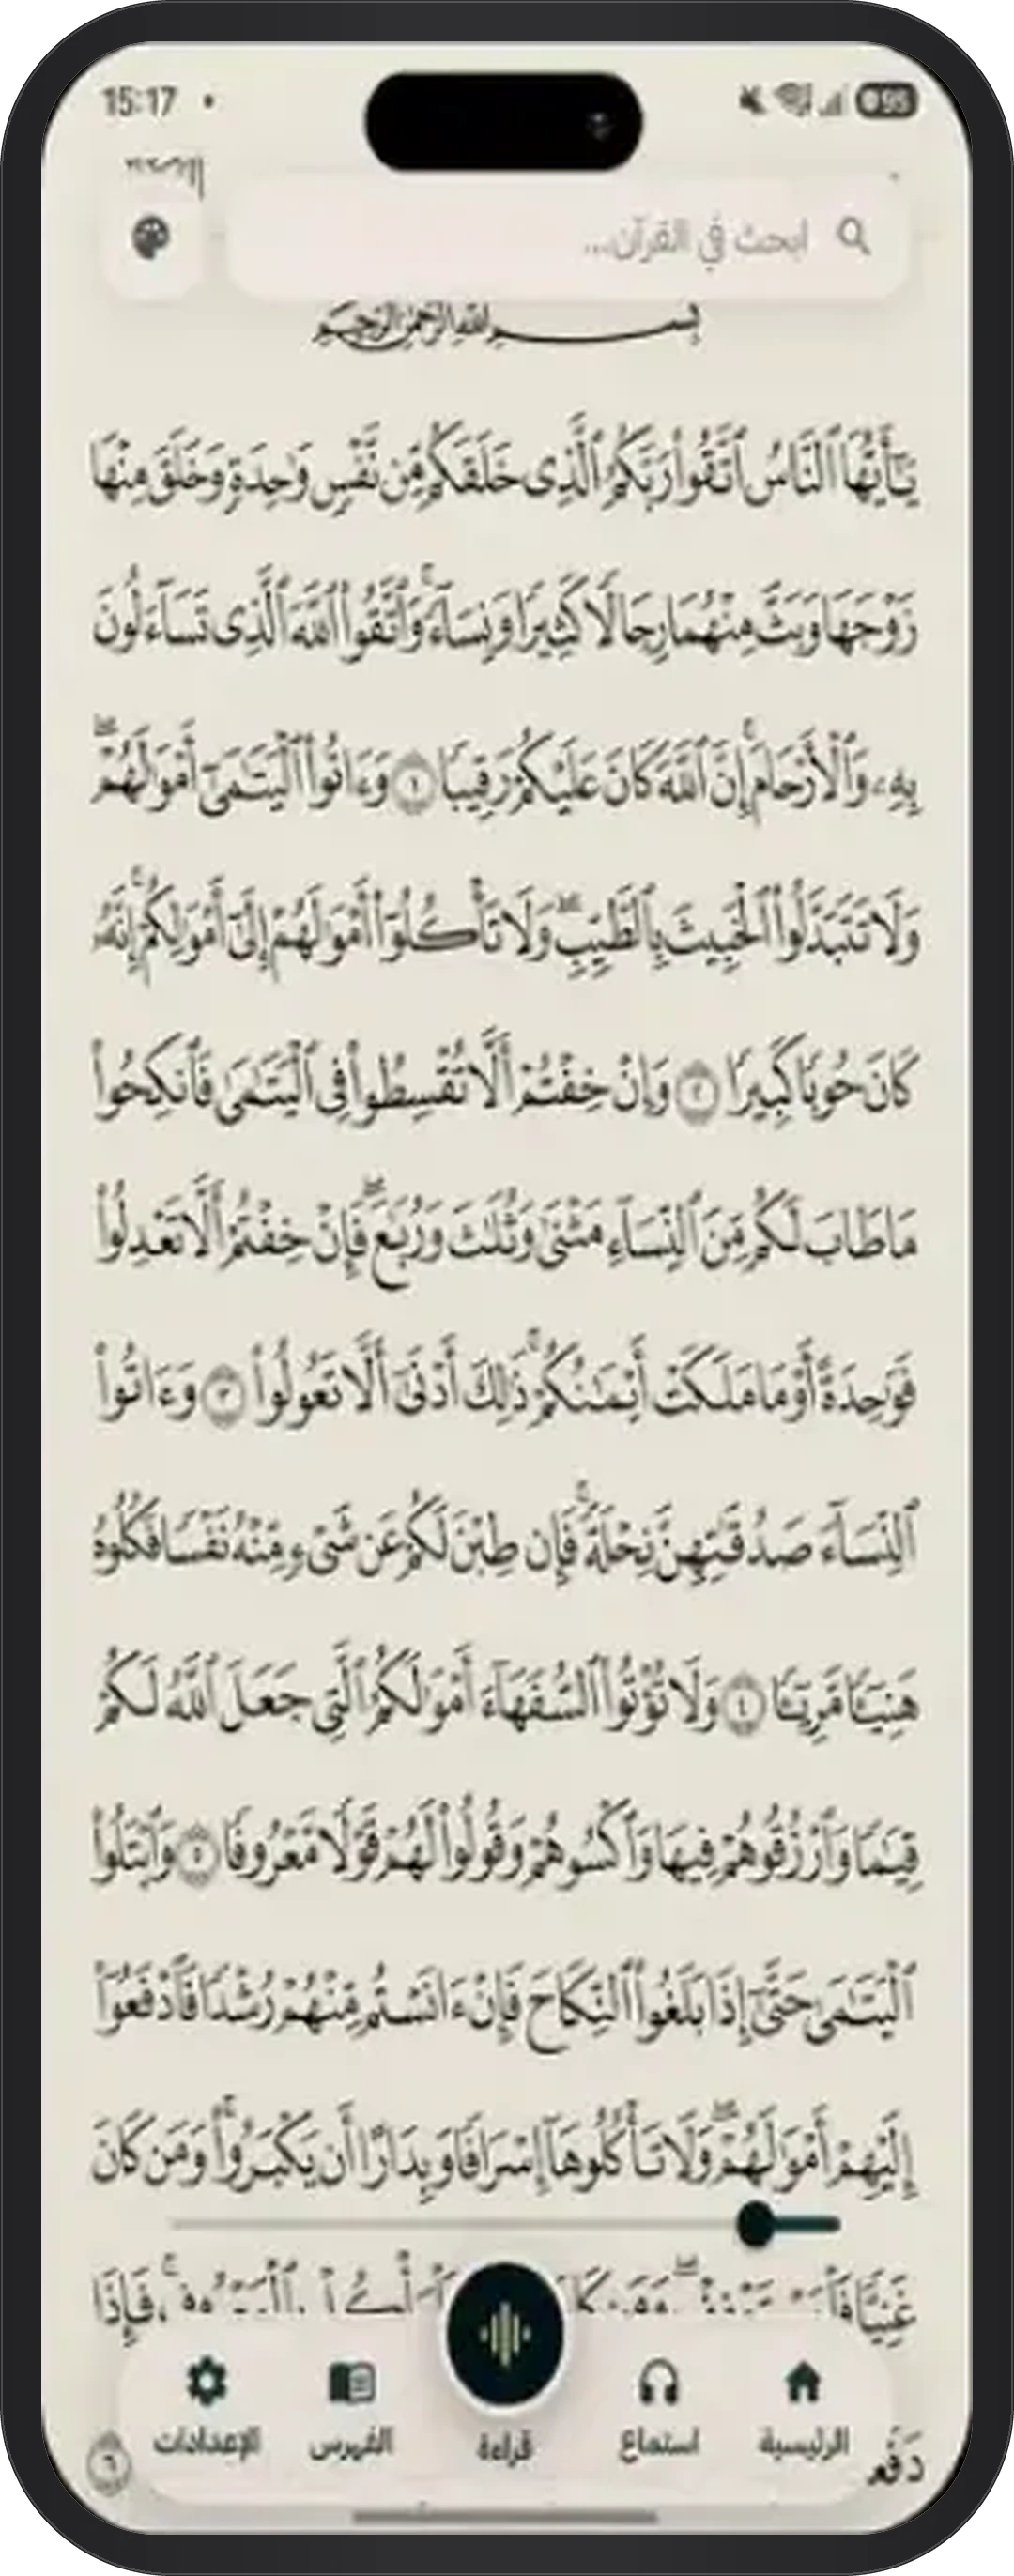 15:17
95
ابحث في القرآن...
بسم الله الرحمن الرحيم
يَٰٓأَيُّهَا ٱلنَّاسُ ٱتَّقُواْ رَبَّكُمُ ٱلَّذِى خَلَقَكُم مِّن نَّفْسٍ وَٰحِدَةٍ وَخَلَقَ مِنْهَا
زَوْجَهَا وَبَثَّ مِنْهُمَا رِجَالًا كَثِيرًا وَنِسَآءً ۚ وَٱتَّقُواْ ٱللَّهَ ٱلَّذِى تَسَآءَلُونَ
بِهِۦ وَٱلْأَرْحَامَ ۚ إِنَّ ٱللَّهَ كَانَ عَلَيْكُمْ رَقِيبًا ١ وَءَاتُواْ ٱلْيَتَٰمَىٰٓ أَمْوَٰلَهُمْ ۖ
وَلَا تَتَبَدَّلُواْ ٱلْخَبِيثَ بِٱلطَّيِّبِ ۖ وَلَا تَأْكُلُوٓاْ أَمْوَٰلَهُمْ إِلَىٰٓ أَمْوَٰلِكُمْ ۚ إِنَّهُۥ
كَانَ حُوبًا كَبِيرًا ٢ وَإِنْ خِفْتُمْ أَلَّا تُقْسِطُواْ فِى ٱلْيَتَٰمَىٰ فَٱنكِحُواْ
مَا طَابَ لَكُم مِّنَ ٱلنِّسَآءِ مَثْنَىٰ وَثُلَٰثَ وَرُبَٰعَ ۖ فَإِنْ خِفْتُمْ أَلَّا تَعْدِلُواْ
فَوَٰحِدَةً أَوْ مَا مَلَكَتْ أَيْمَٰنُكُمْ ۚ ذَٰلِكَ أَدْنَىٰٓ أَلَّا تَعُولُواْ ٣ وَءَاتُواْ
ٱلنِّسَآءَ صَدُقَٰتِهِنَّ نِحْلَةً ۚ فَإِن طِبْنَ لَكُمْ عَن شَىْءٍ مِّنْهُ نَفْسًا فَكُلُوهُ
هَنِيٓـًٔا مَّرِيٓـًٔا ٤ وَلَا تُؤْتُواْ ٱلسُّفَهَآءَ أَمْوَٰلَكُمُ ٱلَّتِى جَعَلَ ٱللَّهُ لَكُمْ
قِيَٰمًا وَٱرْزُقُوهُمْ فِيهَا وَٱكْسُوهُمْ وَقُولُواْ لَهُمْ قَوْلًا مَّعْرُوفًا ٥ وَٱبْتَلُواْ
ٱلْيَتَٰمَىٰ حَتَّىٰٓ إِذَا بَلَغُواْ ٱلنِّكَاحَ فَإِنْ ءَانَسْتُم مِّنْهُمْ رُشْدًا فَٱدْفَعُوٓاْ
إِلَيْهِمْ أَمْوَٰلَهُمْ ۖ وَلَا تَأْكُلُوهَآ إِسْرَافًا وَبِدَارًا أَن يَكْبَرُواْ ۚ وَمَن كَانَ
غَنِيًّا فَإِذَا
دَفَع ٦
الرئيسية
استماع
قراءة
الفهرس
الإعدادات